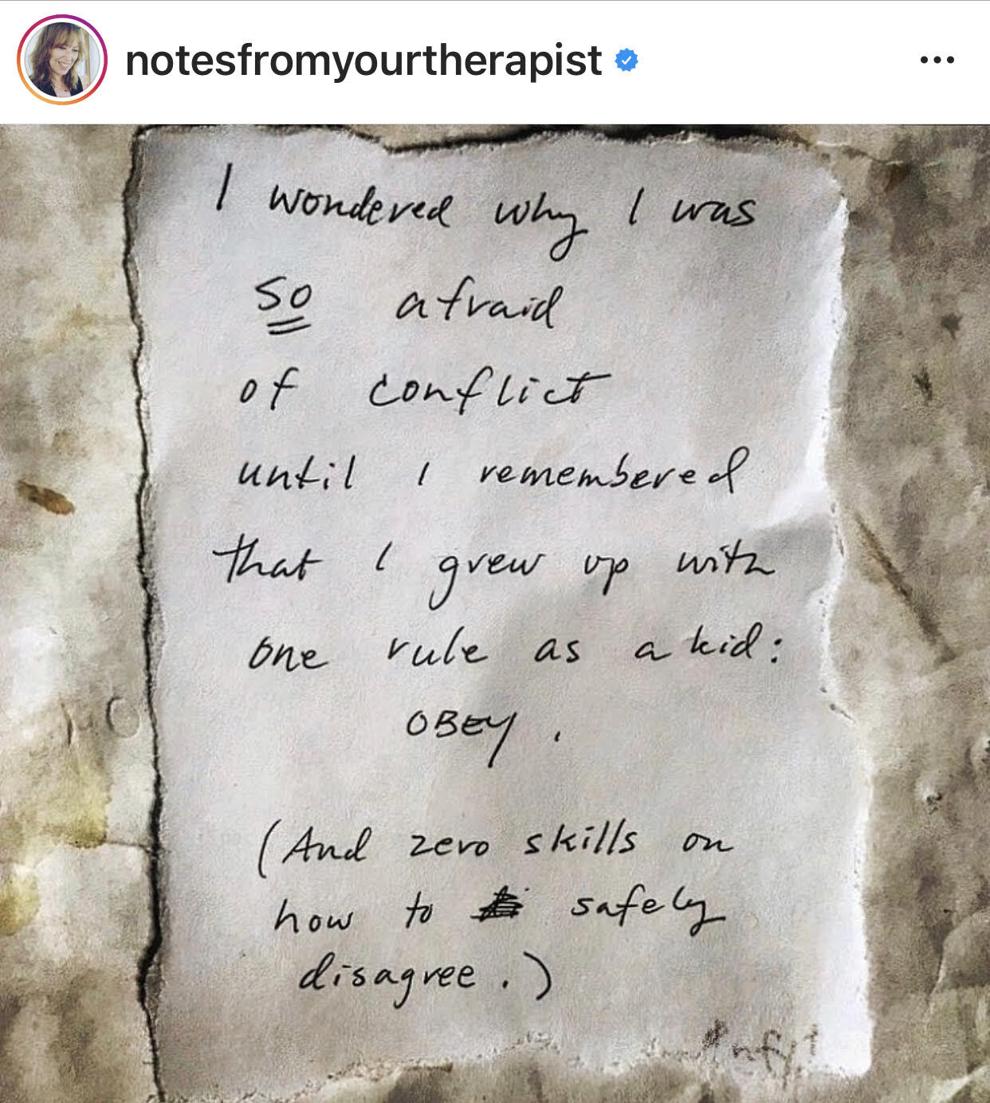 notesfromyourtherapist
I wondered why I was
so afraid
of conflict
until I remembered
that I grew up with
one rule as a kid:
OBEY.
(And zero skills on
how to safely
disagree.)
#nfyt